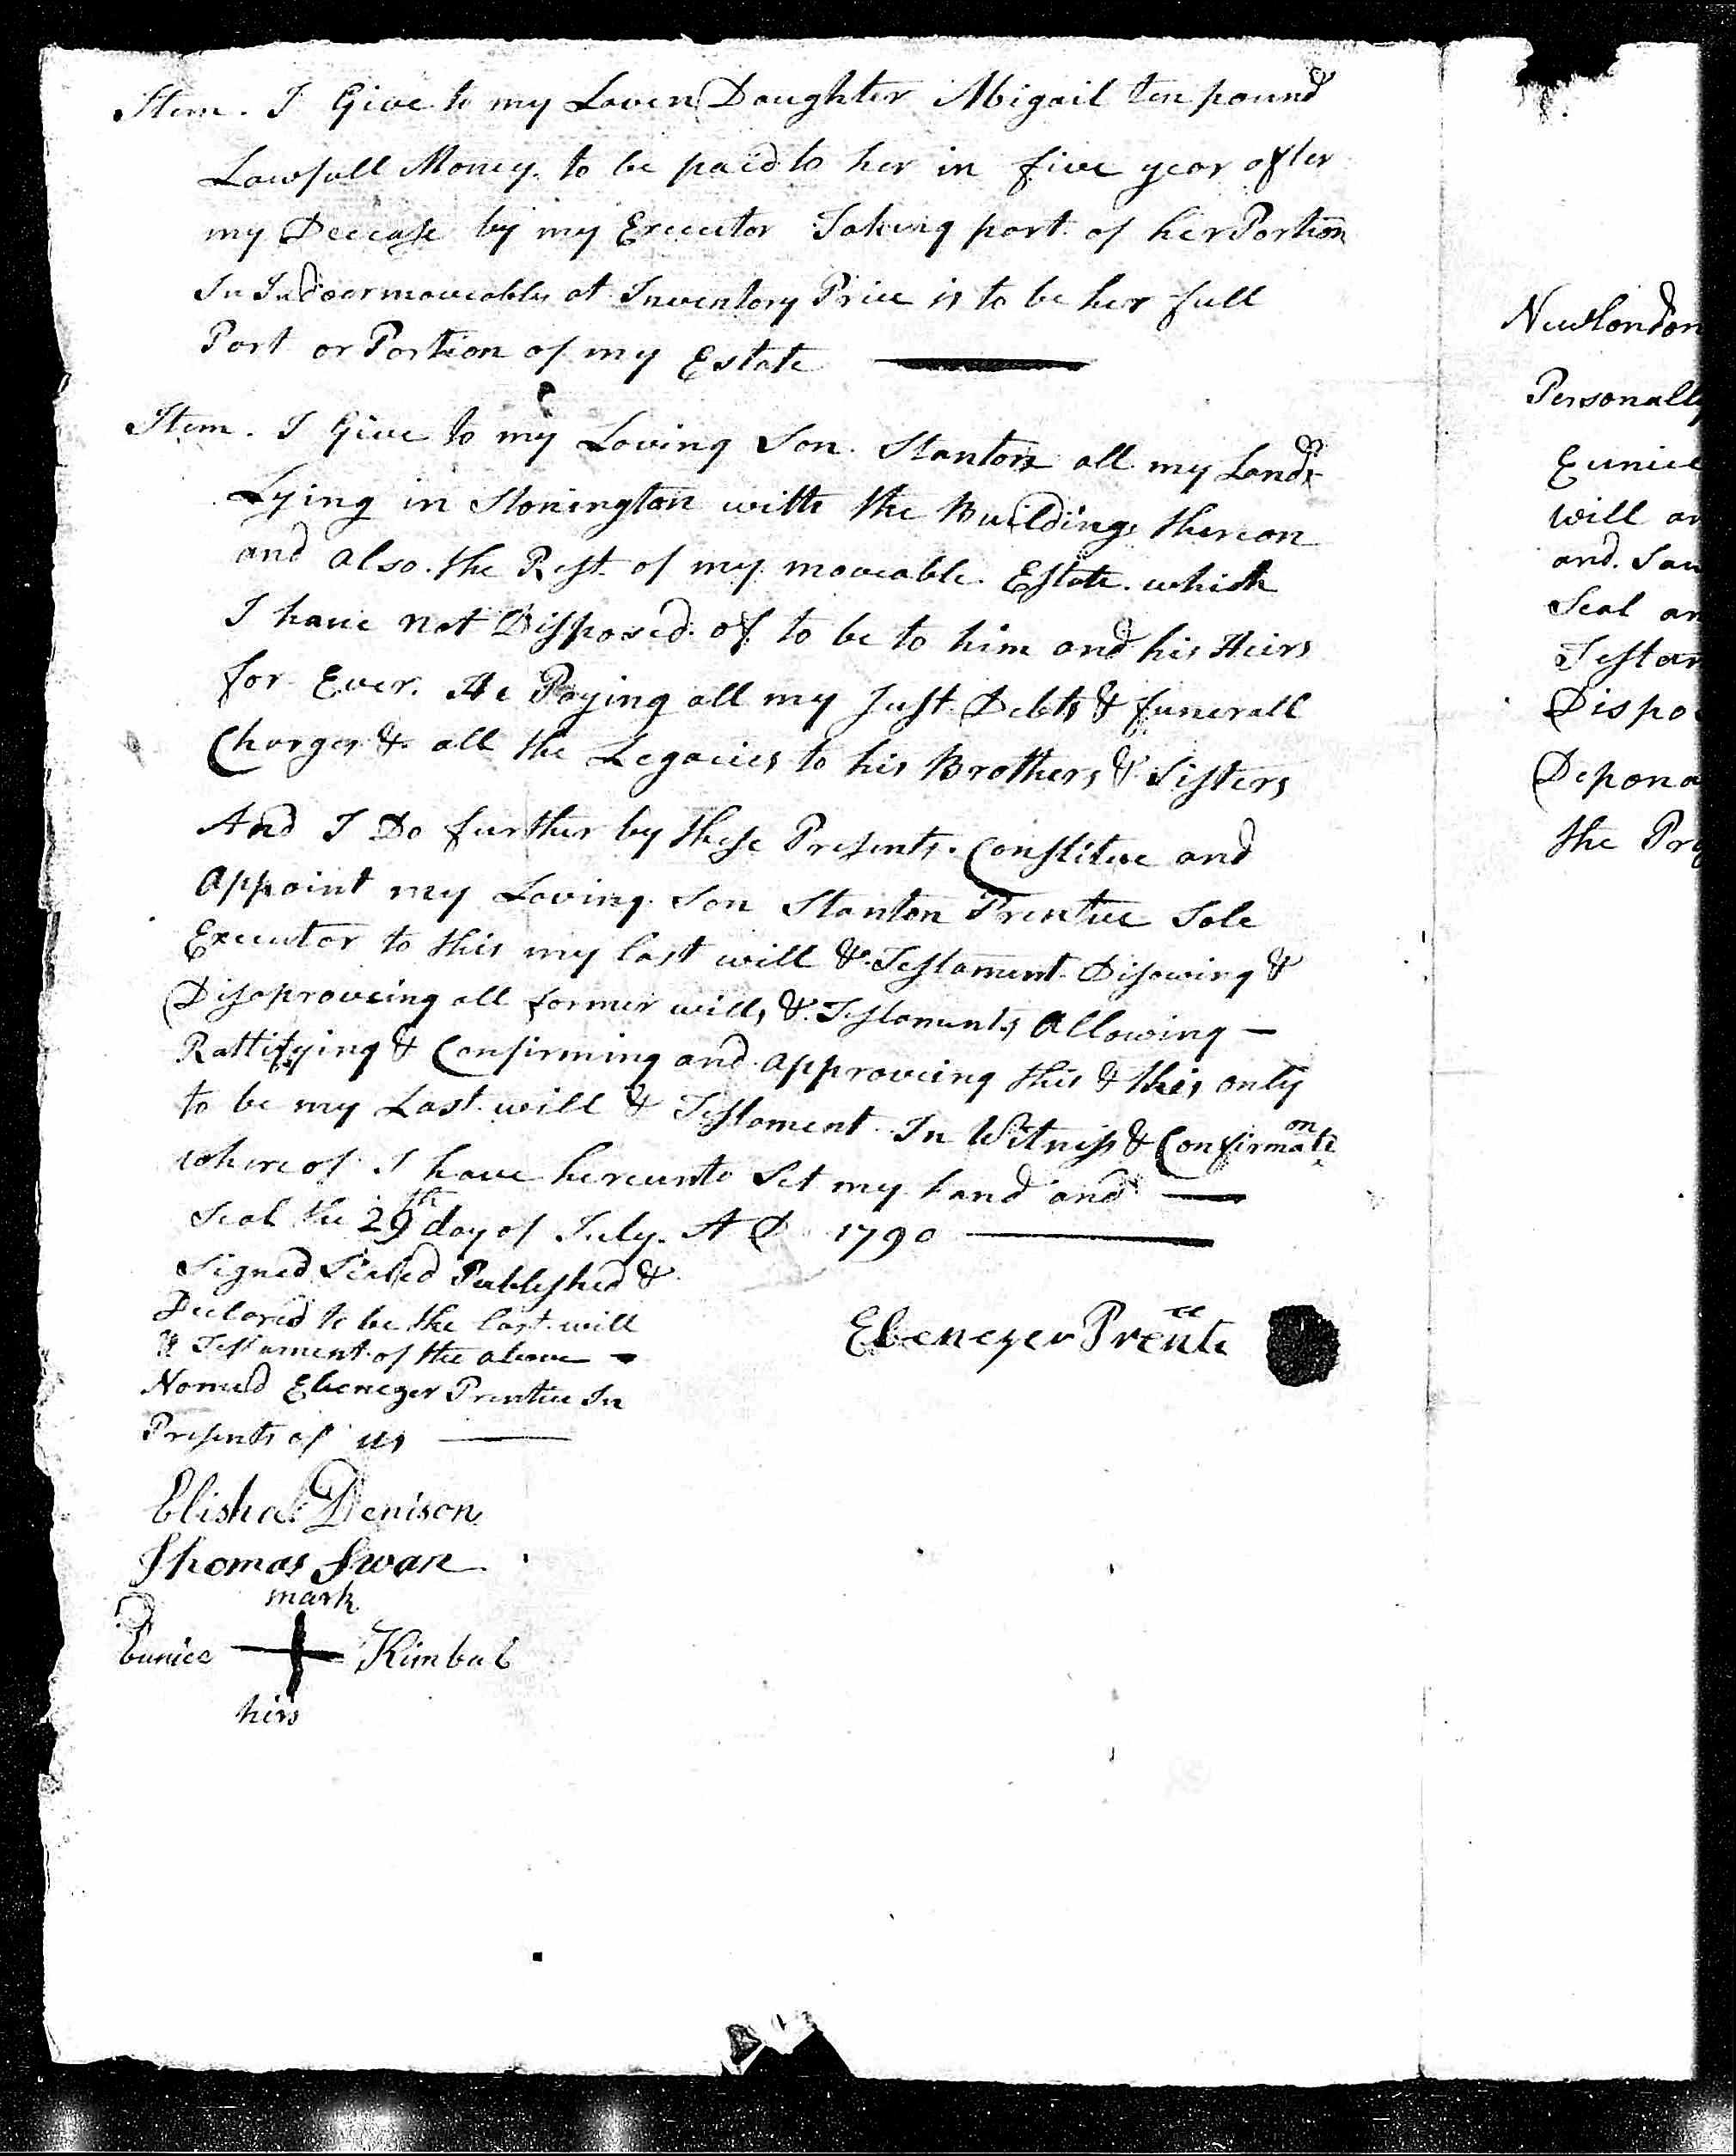 Item. I Give to my Loven Daughter Abigail ten pound
Lawfull Money. to be paid to her in five year after
my Decease by my Executor Taking part of her Portion
In Indoor moveables at Inventory Price is to be her full
Part or Portion of my Estate
Item. I Give to my Loving Son Stanton all my Lands
Lying in Stonington with the Buildings thereon
and also the Rest of my moveable Estate. which
I have not Disposed of to be to him and his Heirs
for Ever. He Paying all my Just Debts & funerall
Charges & all the Legacies to his Brothers & Sisters
And I Do further by these Presents. Constitue and
Appoint my Loving Son Stanton Prentice Sole
Executor to this my last will & Testament Disowing &
Disaproveing all former wills & Testaments Allowing —
Rattifying & Confirming and approveing this & this only
to be my Last will & Testament In Witness & Confirmati on
whereof I have hereunto Set my hand and —
Seal the 29th day of July. A D 1790
Signed Sealed Publeshed &
Declared to be the last will
& Testament of the above
Named Ebenezer Prentice In
Presents of us
Ebenezer Prentice
Elisha Denison
Thomas Swan
mark
Eunice + Kimbal
hirs
Newlondon
Personally
Eunice
will an
and. Sau
Seal an
Testam
Dispo
Depona
the Pro